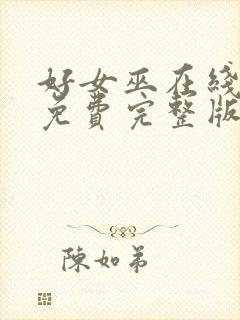 好女巫在綫
免費完整版
陳如弟